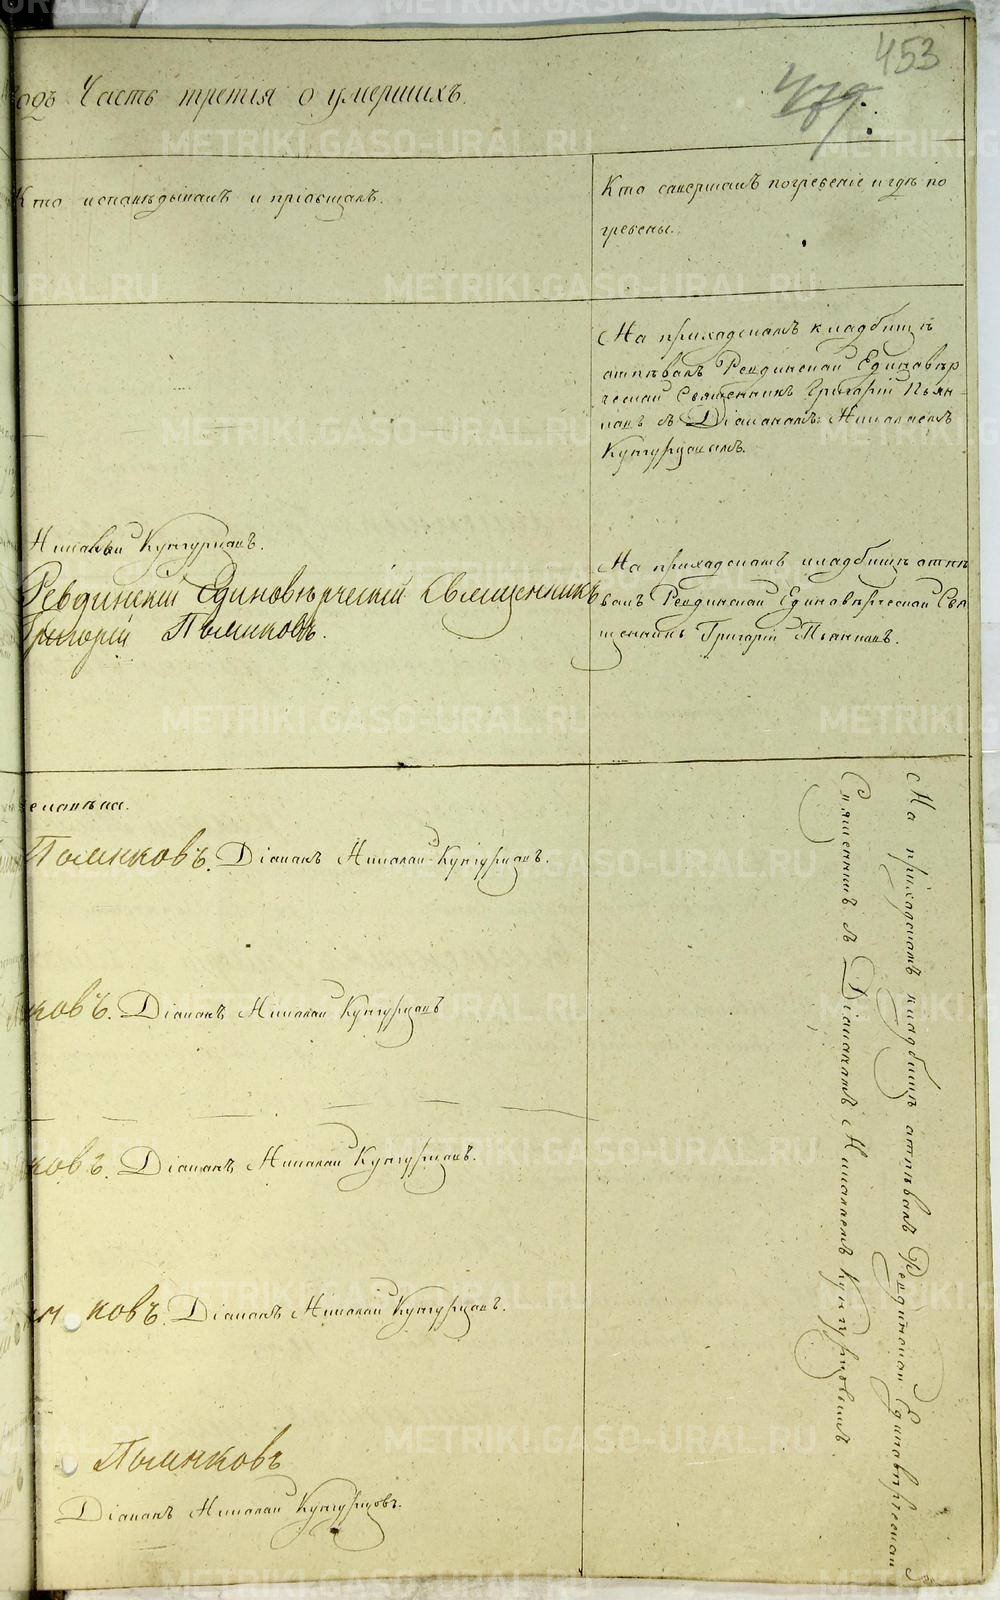 453
479.
одъ Часть третія о умершихъ.
Кто исповѣдывалъ и пріобщалъ.
Кто совершалъ погребеніе и гдѣ по
гребены.
На приходскомъ кладбищѣ
отпѣвалъ Ревдинской Единовѣр
ческой Священникъ Григорій Пьян-
ковъ съ Діакономъ Николаемъ
Кунгурцовымъ.
Николай Кунгурцовъ.
Ревдинскій Единовѣрческій Священникъ
Григорій Пьянковъ.
На приходскомъ кладбищѣ отпѣ
валъ Ревдинской Единовѣрческой Свя
щенникъ Григорій Пьянковъ.
Пьянковъ. Діаконъ Николай Кунгурцовъ.
ковъ. Діаконъ Николай Кунгурцовъ
ковъ. Діаконъ Николай Кунгурцовъ.
ковъ. Діаконъ Николай Кунгурцовъ.
Пьянковъ
Діаконъ Николай Кунгурцовъ.
На приходскомъ кладбищѣ отпѣвалъ Ревдинской Единовѣрческой
Священникъ съ Діакономъ Николаемъ Кунгурцовымъ.
METRIKI.GASO-URAL.RU